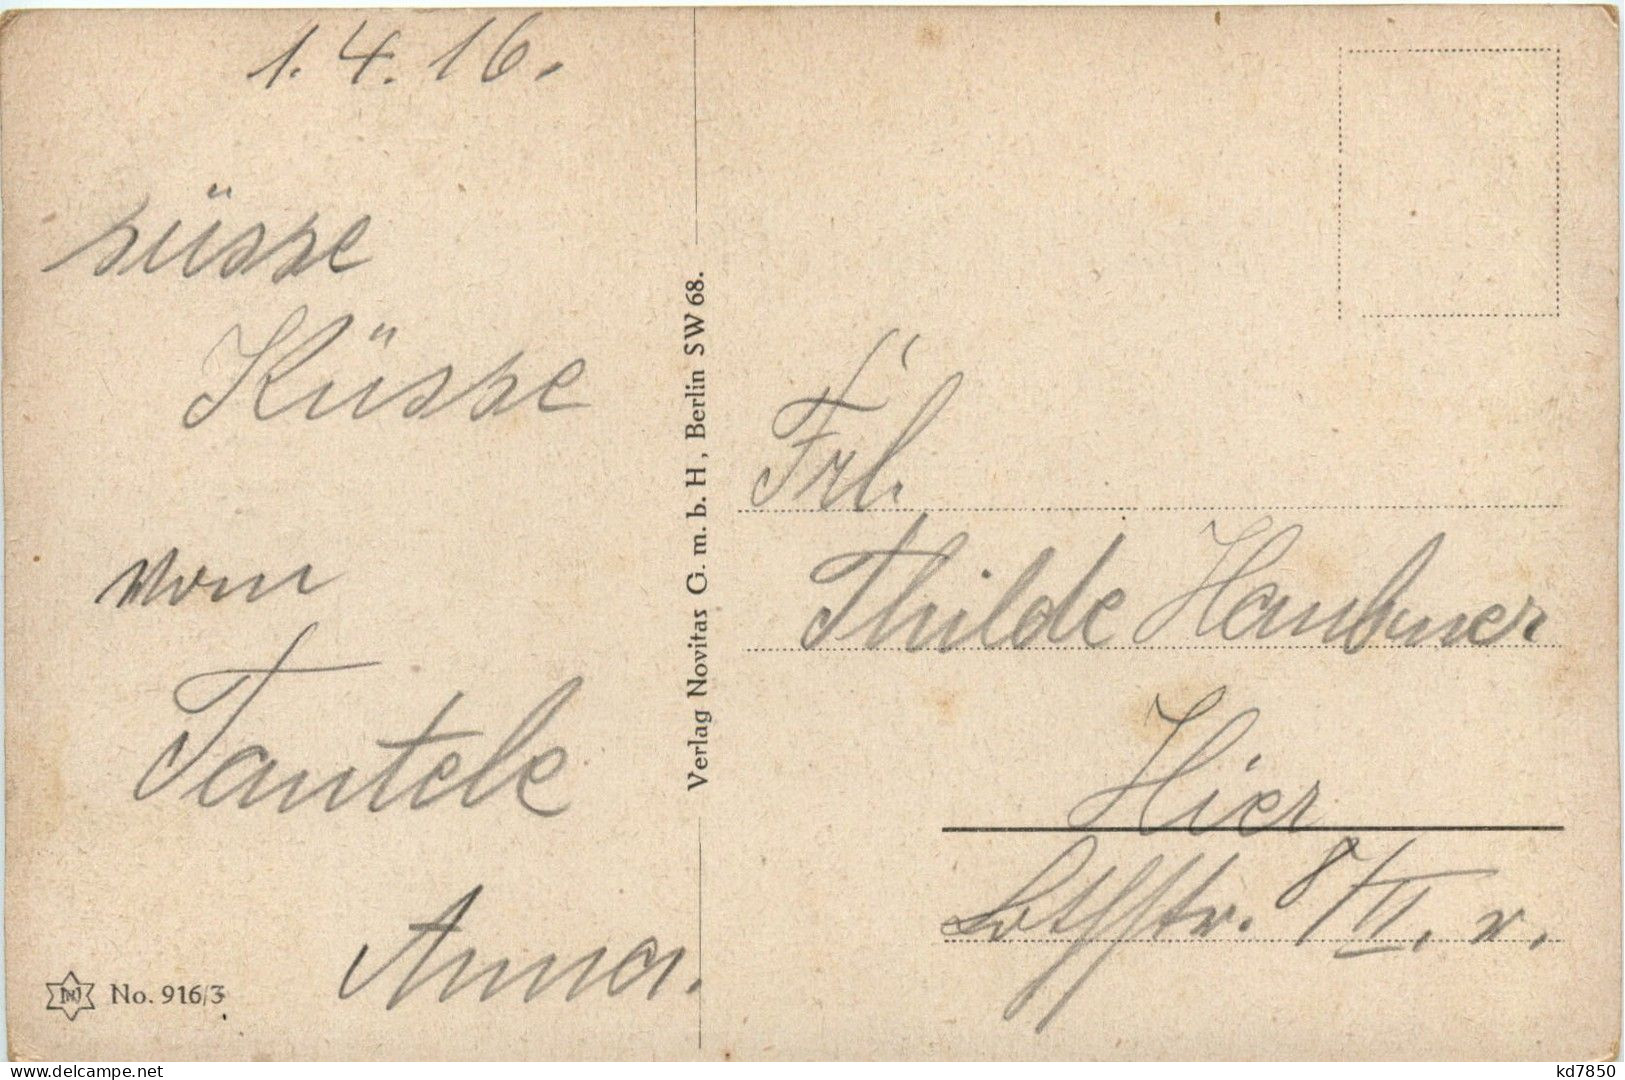 1. 4. 16.
süsse
Küsse
vom
Tantele
Anna.
No. 916/3
Verlag Novitas G. m. b. H, Berlin SW 68.
Frl.
Thilde Haubner
Hier
8/II. r.
delcampe.net
kd7850